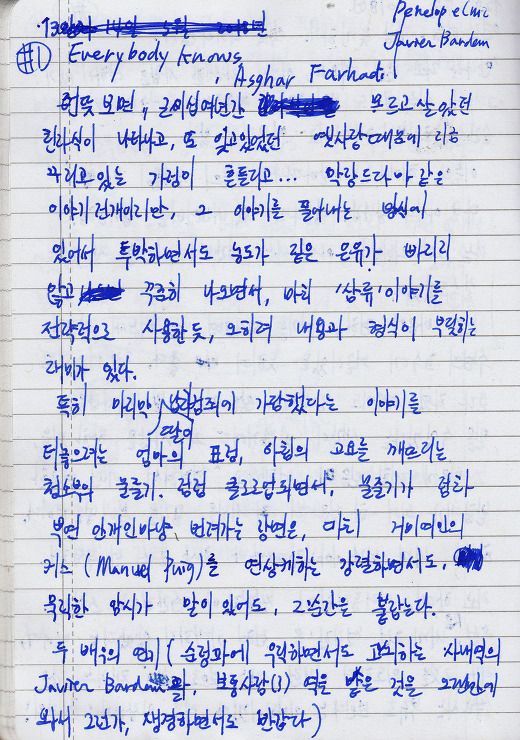 Penelope
Javier Bardem
#1) Everybody Knows,
Asghar Farhadi
언뜻 보면, 근 이십여년간 모르고 살았던
나타나고, 또 잊고있었던 옛사랑 때문에 지금
꾸리고 있는 가정이 흔들리고... 막장드라마 같은
이야기 전개이지만, 그 이야기를 풀어내는 방식에
있어서 투박하면서도 농도가 짙은 은유가 빠지지
않고 꾸준히 나오면서, 마치 '삼류' 이야기를
전략적으로 사용한 듯, 오히려 내용과 형식이 부딪히는
재미가 있다.
특히 마지막 딸이 납치범죄에 가담했다는 이야기를
털어놓으려는 엄마의 표정, 아침의 고요를 깨뜨리는
청소부의 물줄기. 점점 클로즈업되면서, 물줄기가
뿌연 안개인마냥 번져가는 장면은, 마치 거미여인의
키스 (Manuel Puig)를 연상케하는 강렬하면서도,
묵직한 암시가 많이 있어도, 그 순간은 놀랍다.
두 배우의 연기 (순정파에 우직하면서도 고뇌하는 사내역의
Javier Bardem, 보통사람(?) 역을 맡은 것을 오랜만에
봐서 그런가, 생경하면서도 반갑다)